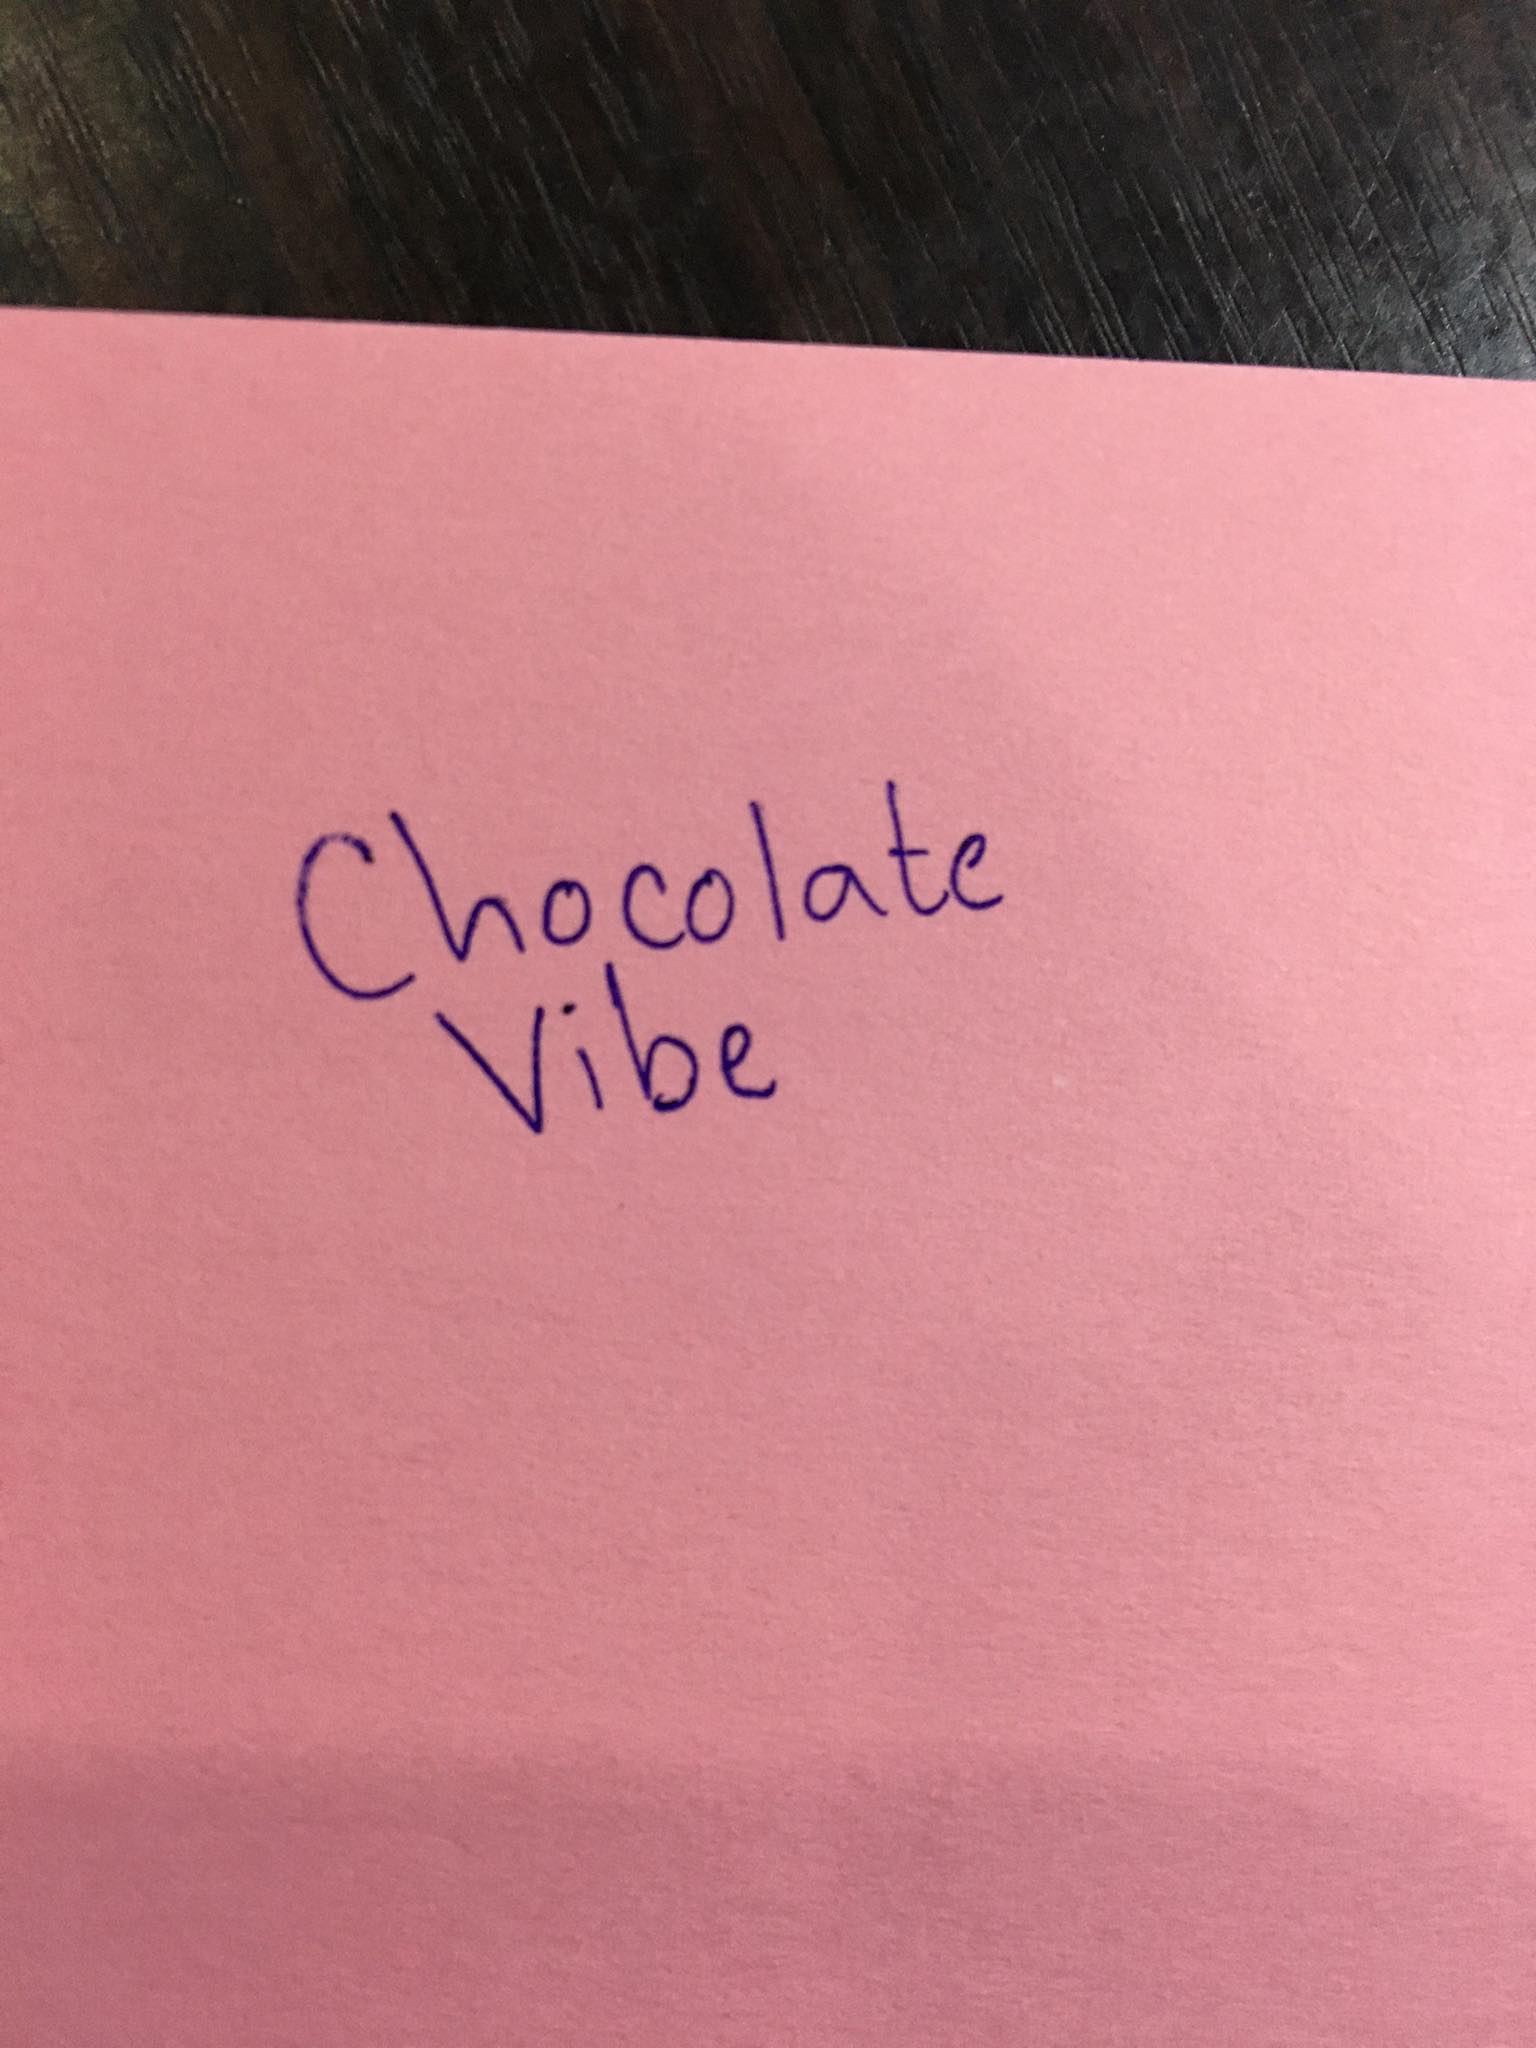 Chocolate
Vibe